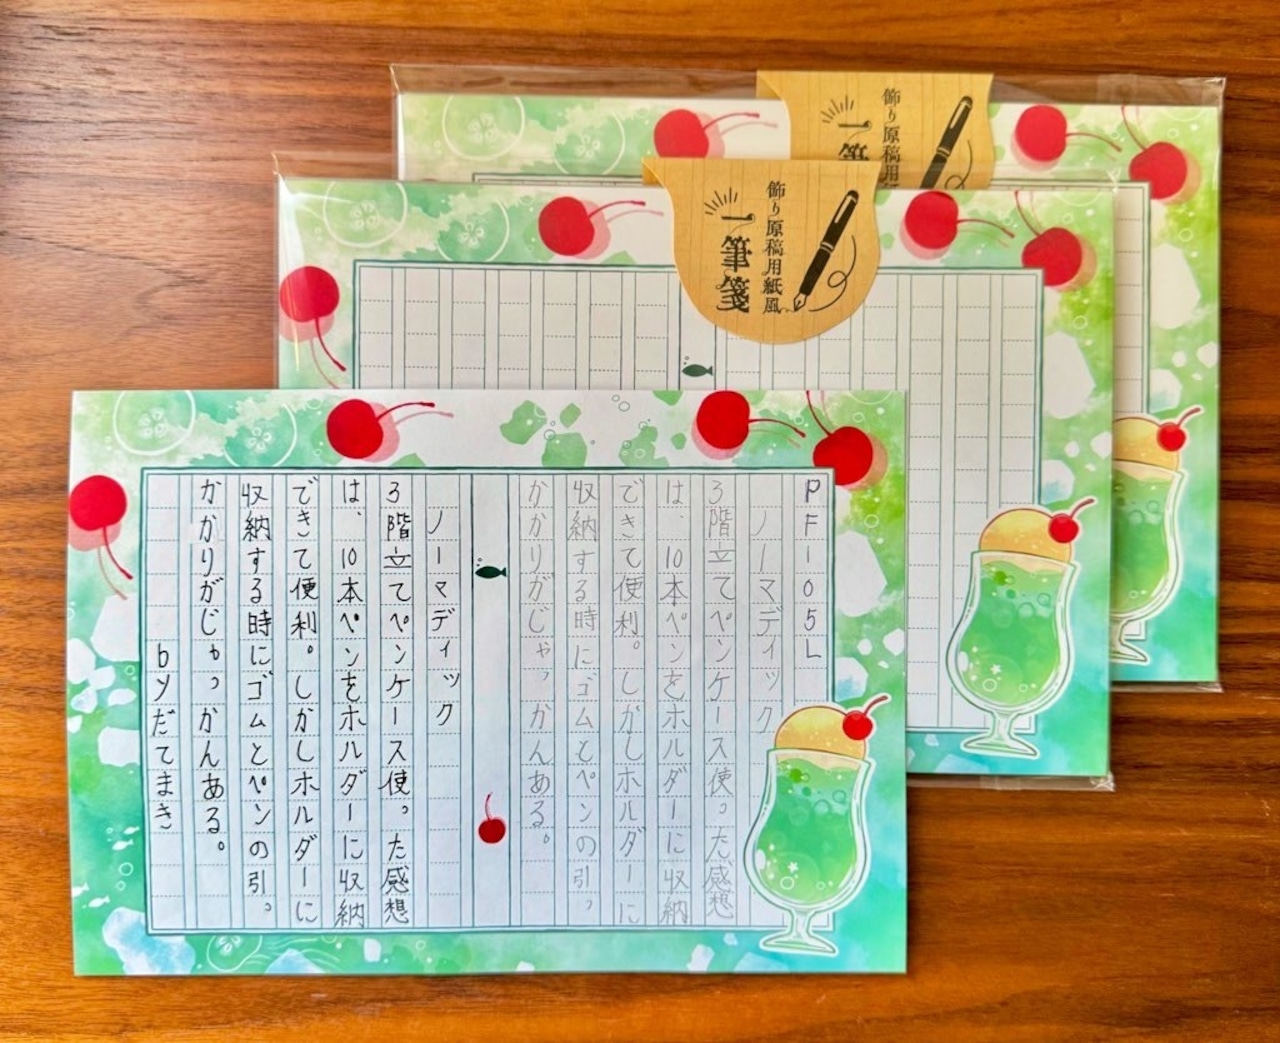 飾り原稿用紙
一筆
飾り原稿用紙風
一筆箋
PF-05L
ノーマディック
3階立てペンケース使った感想
は、10本ペンをホルダーに収納
できて便利。しかしホルダーに
収納する時にゴムとペンの引っ
かかりがじゃっかんある。
ノーマディック
3階立てペンケース使った感想
は、10本ペンをホルダーに収納
できて便利。しかしホルダーに
収納する時にゴムとペンの引っ
かかりがじゃっかんある。
byだてまき